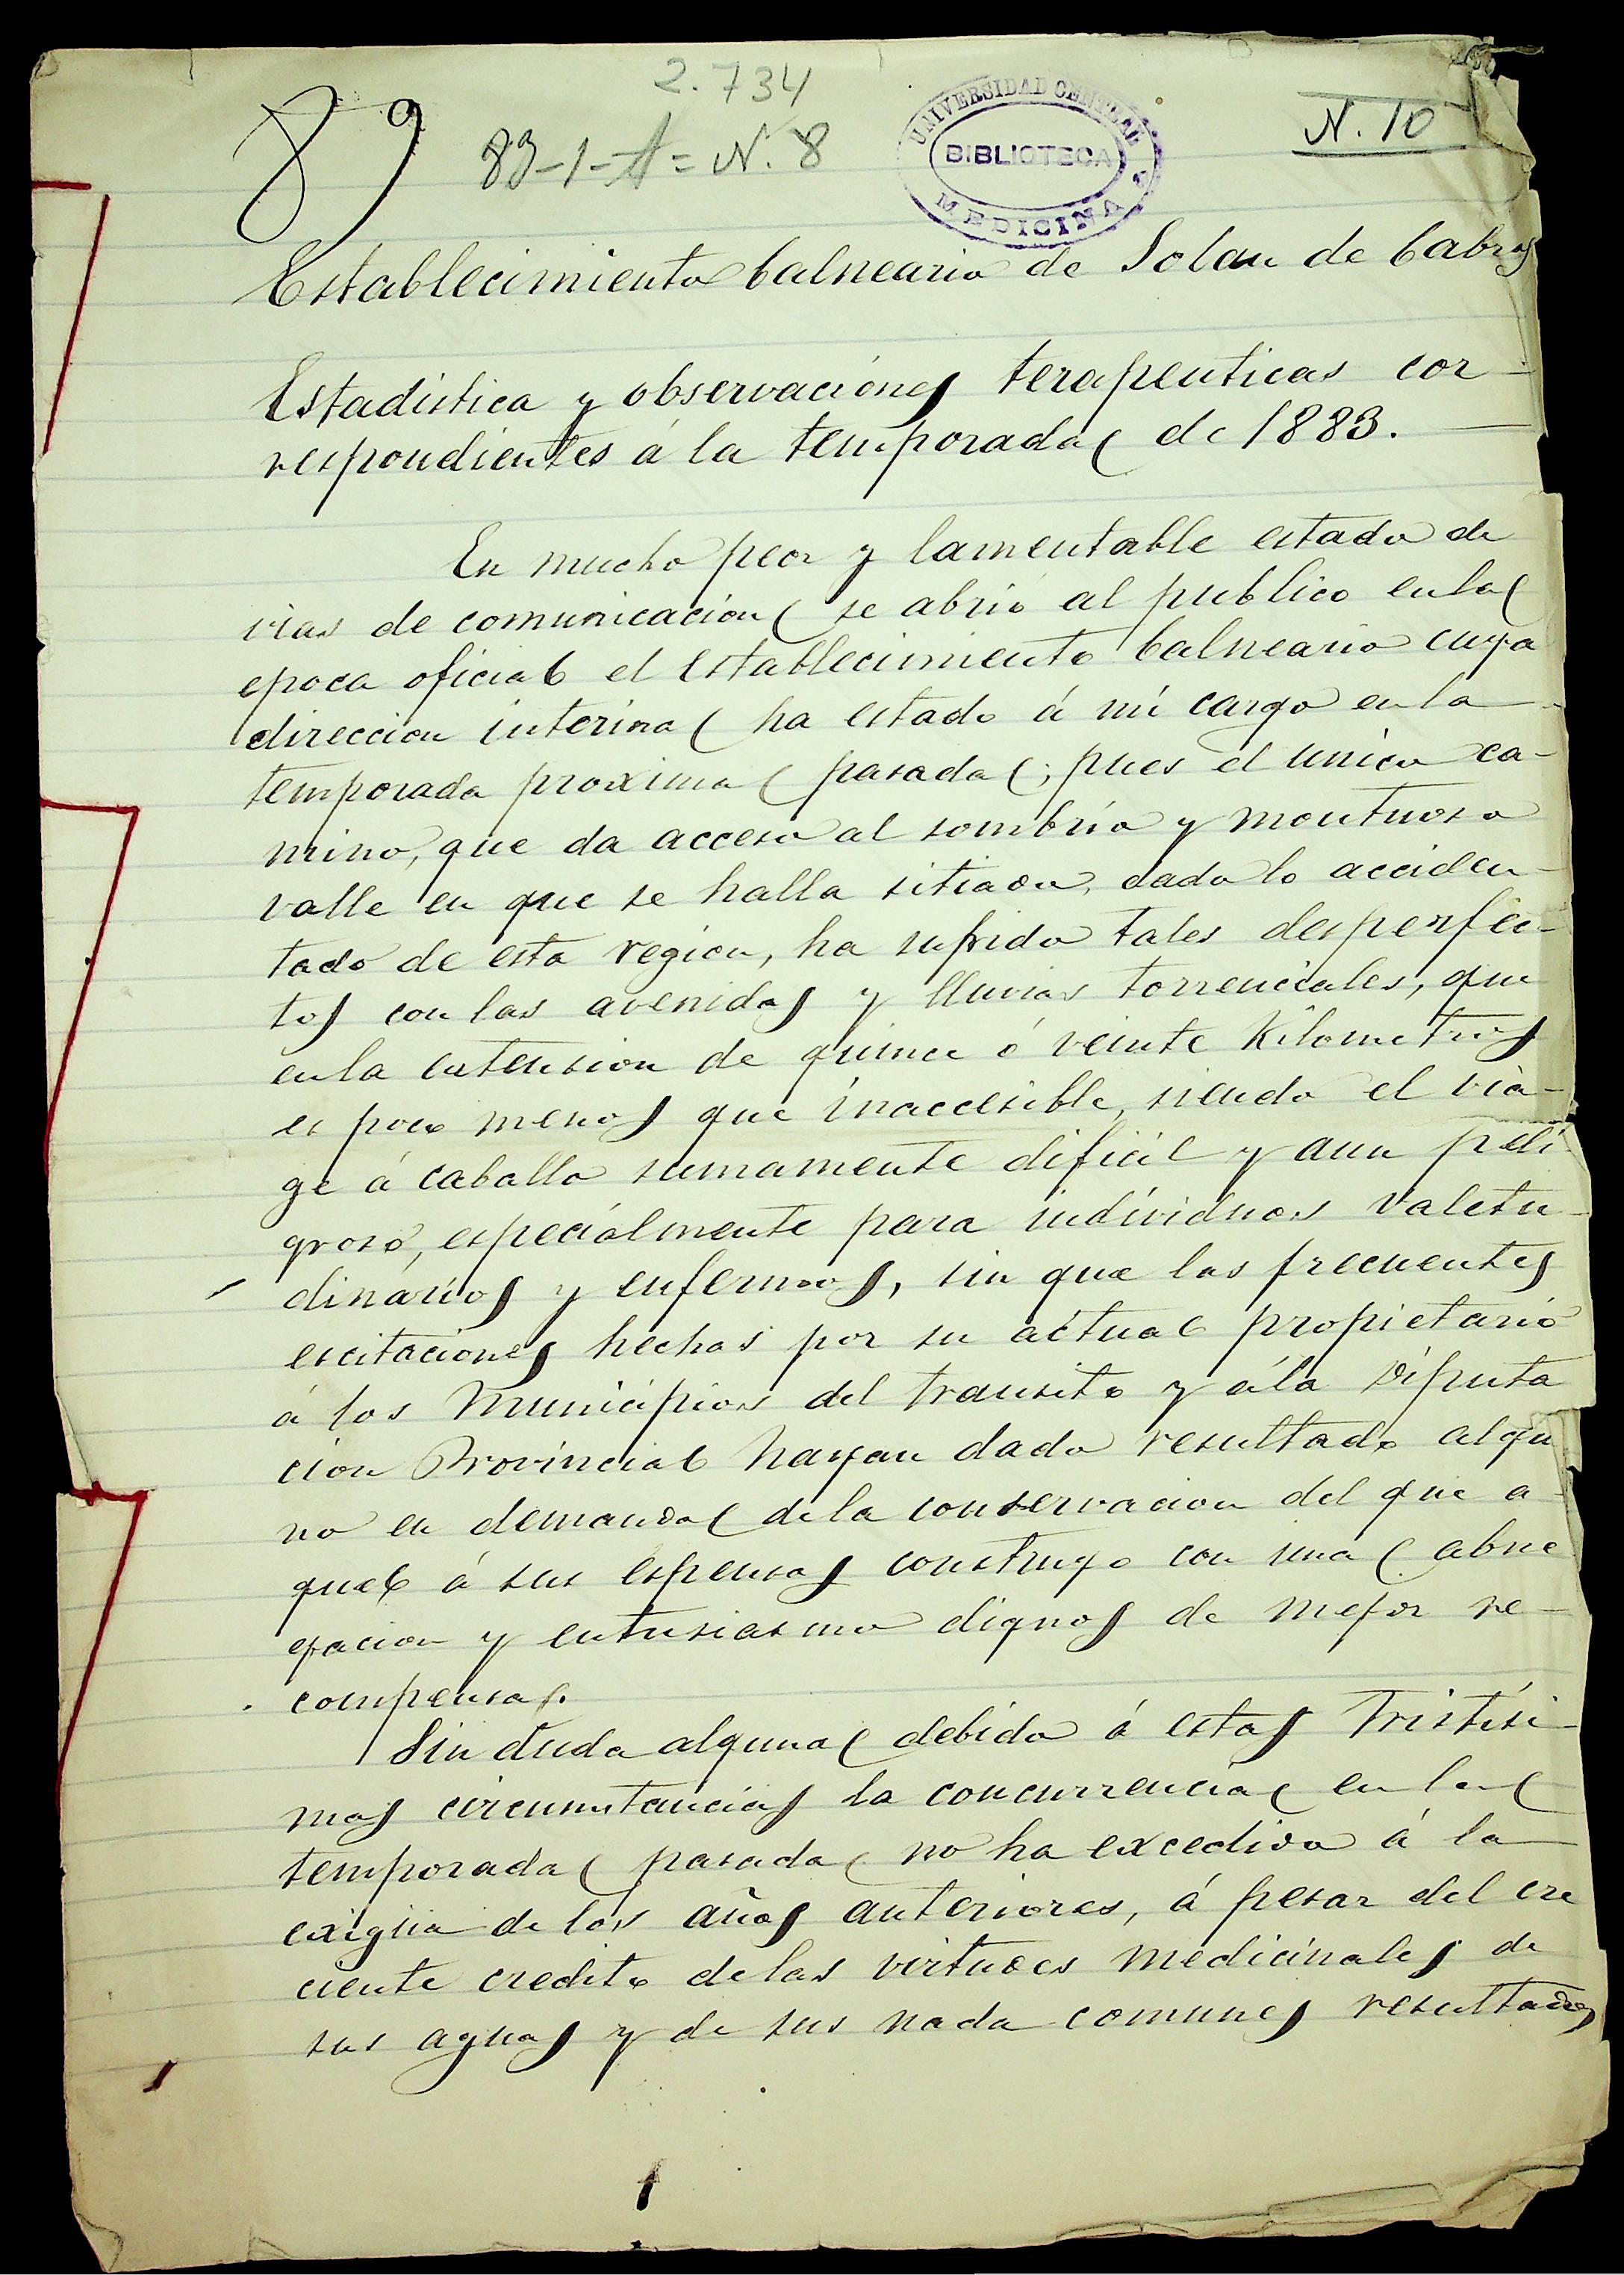 2.734
89 83-1-A=N. 8
UNIVERSIDAD CENTRAL
BIBLIOTECA
MEDICINA
N. 10
Establecimiento balneario de Solan de Cabras
Estadistica y observaciónes terapeuticas cor-
respondientes á la temporada de 1883.
En mucho peor y lamentable estado de
vias de comunicacion se abrió al publico en la
epoca oficial el establecimiento balneario cuya
direccion interina ha estado á mi cargo en la
temporada proxima pasada; pues el unico ca-
mino, que da acceso al sombrio y montuoso
valle en que se halla sitiado, dado lo acciden-
tado de esta region, ha sufrido tales desperfec-
tos con las avenidas y lluvias torrenciales, que
en la extension de quince ó veinte Kilometros
es poco menos que inaccesible, siendo el via-
ge á caballo sumamente dificil y aun peli-
groso, especialmente para individuos valetu-
dinarios y enfermos, sin que las frecuentes
escitaciones hechas por su actual propietario
á los Municipios del transito y á la Diputa
cion Provincial hayan dado resultado algu
no en demanda de la conservacion del que a-
quel á sus espensas construyo con una abne
gacion y entusiasmo dignos de mejor re-
compensa.
Sin duda alguna debido á estas tristisi-
mas circunstancias la concurrencia en la
temporada pasada no ha excedido á la
exigüa de los años anteriores, á pesar del cre
ciente credito de las virtudes medicinales de
sus aguas y de sus nada comunes resultados
1